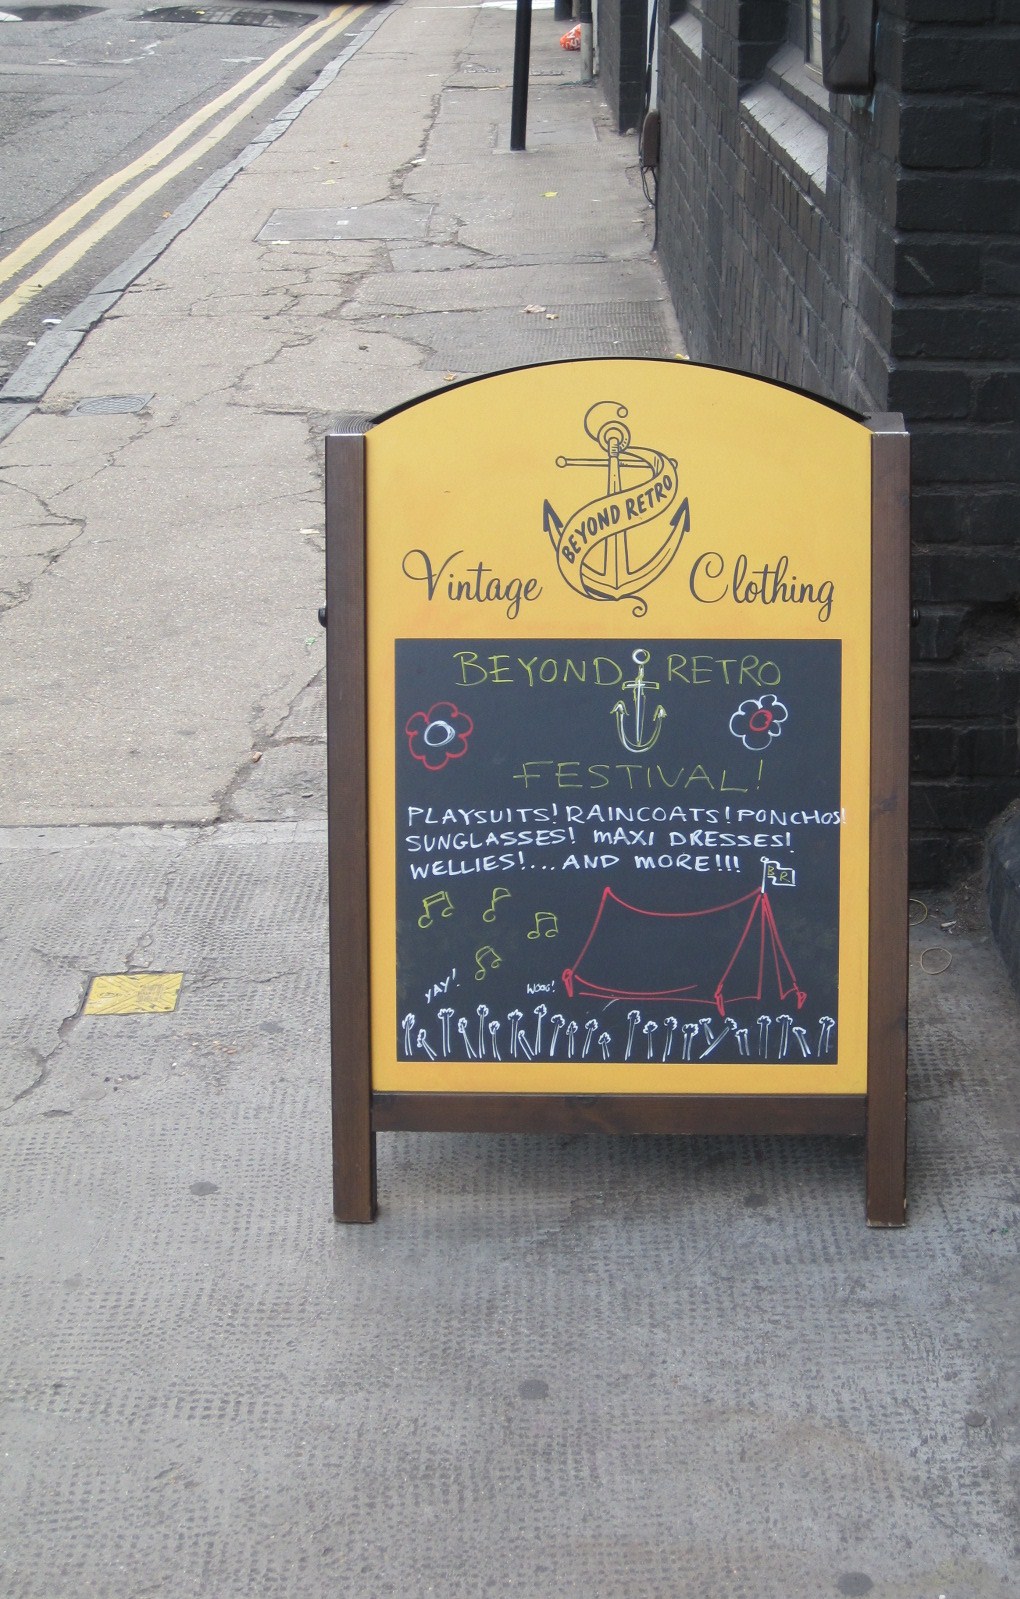 BEYOND RETRO
Vintage Clothing
BEYOND RETRO
FESTIVAL!
PLAYSUITS! RAINCOATS! PONCHOS!
SUNGLASSES! MAXI DRESSES!
WELLIES!...AND MORE!!!
B R
YAY!
WOOO!